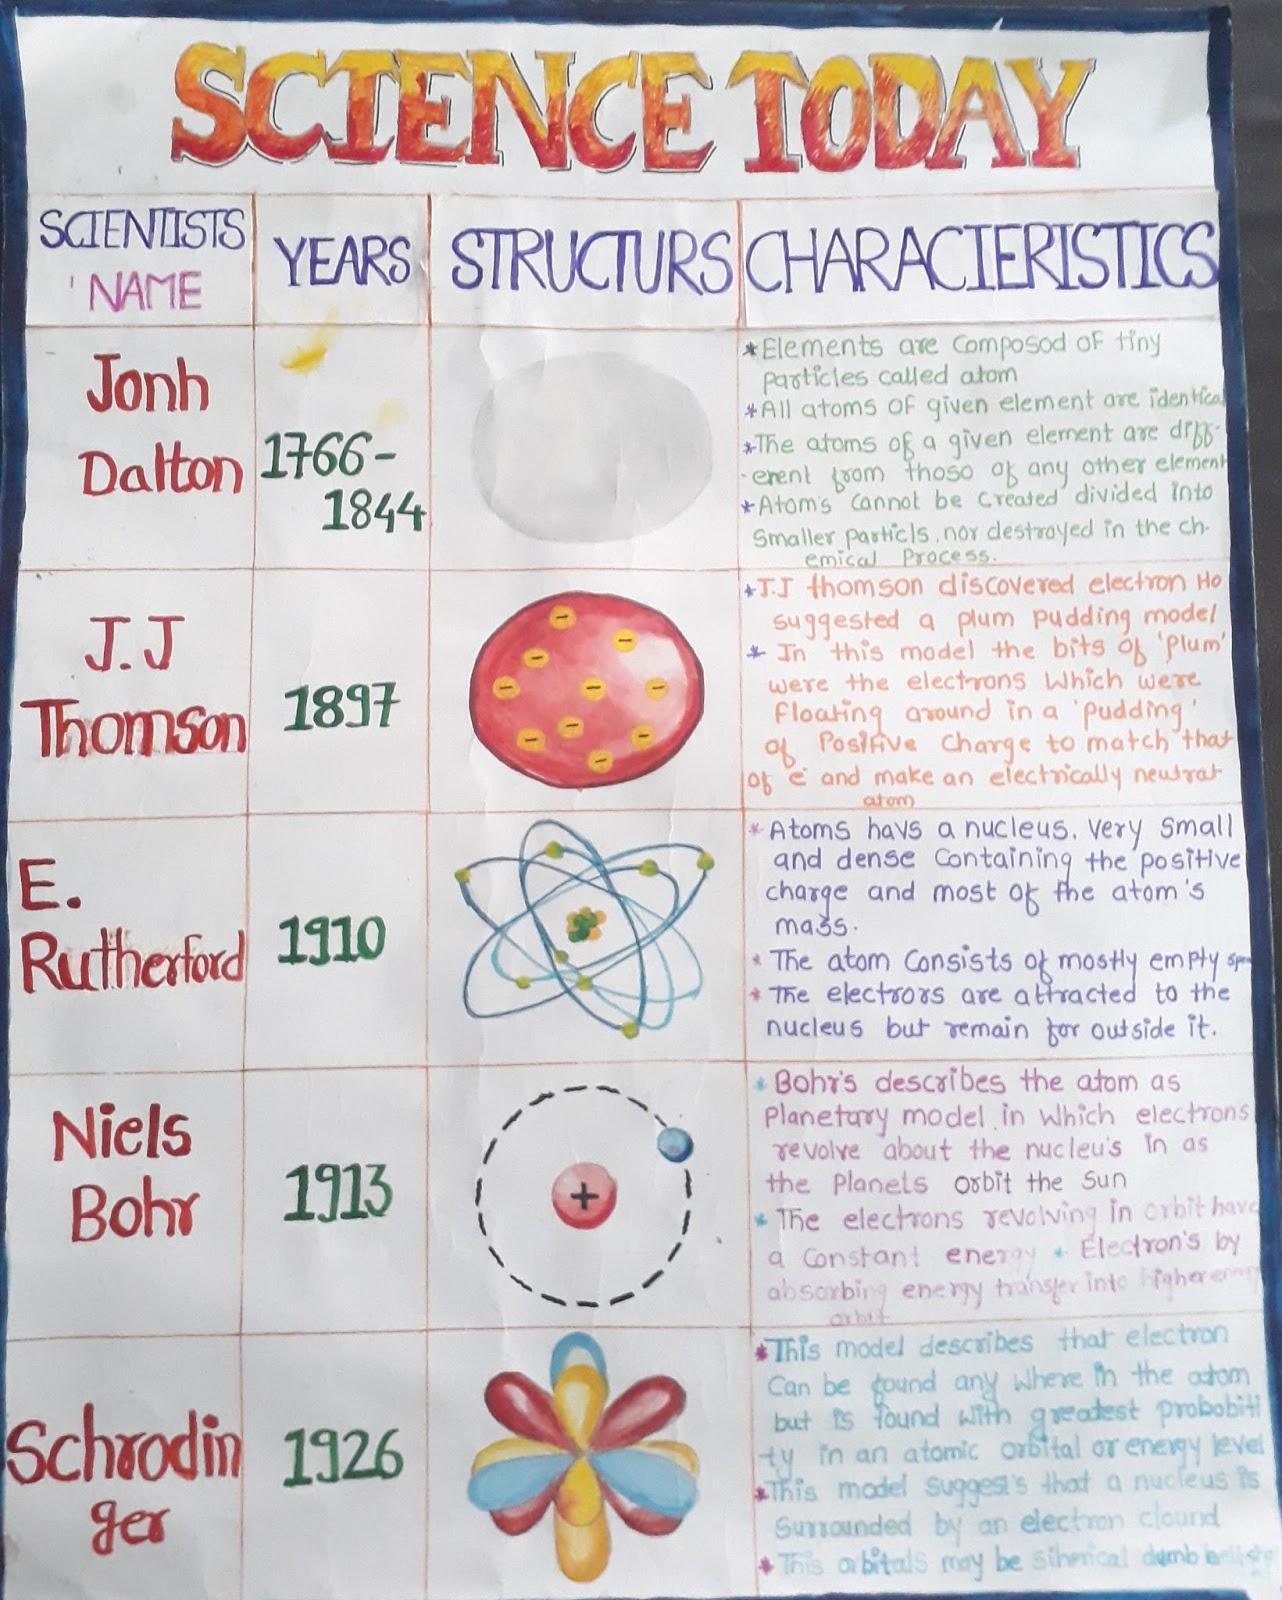 SCIENCE TODAY
SCIENTISTS
NAME
YEARS
STRUCTURS
CHARACIERISTICS
Jonh
Dalton
1766-
1844
*Elements are composod of tiny
particles called atom
*All atoms of given element are identical
*The atoms of a given element are diff-
-erent from thoso of any other element
*Atom's cannot be created divided into
smaller particls, nor destroyed in the ch-
emical process.
J.J
Thomson
1897
*J.J thomson discovered electron Ho
suggested a plum pudding model
* In this model the bits of 'plum'
were the electrons which were
floating around in a 'pudding'
of positive charge to match that
of e⁻ and make an electrically neutrat
atom
E.
Rutherford
1910
* Atoms havs a nucleus, very small
and dense containing the positive
charge and most of the atom's
mass.
* The atom consists of mostly empty
* The electrors are attracted to the
nucleus but remain for outside it.
Niels
Bohr
1913
+
* Bohr's describes the atom as
planetary model in which electrons
revolve about the nucleu's in as
the planels orbit the sun
* The electrons revolving in orbit have
a constant energy * Electron's by
absorbing energy transfer into higher energy
orbit
Schrodin
ger
1926
*This model describes that electron
can be found any where in the atom
but is found with greatest probobiti
ty in an atomic orbital or energy level
*This model suggest's that a nucleus is
surrounded by an electron clound
* This orbitals may be siherical dumb